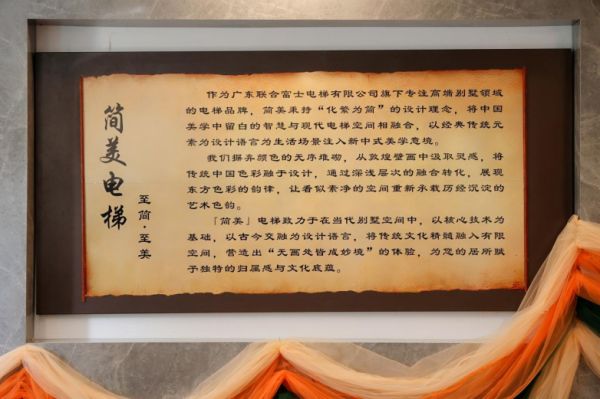 简美电梯
至简·至美
作为广东联合富士电梯有限公司旗下专注高端别墅领域
的电梯品牌，简美秉持“化繁为简”的设计理念，将中国
美学中留白的智慧与现代电梯空间相融合，以经典传统元
素为设计语言为生活场景注入新中式美学意境。
我们摒弃颜色的无序堆砌，从敦煌壁画中汲取灵感，将
传统中国色彩融于设计，通过深浅层次的融合转化，展现
东方色彩的韵律，让看似素净的空间重新承载历经沉淀的
艺术色韵。
「简美」电梯致力于在当代别墅空间中，以核心技术为
基础，以古今交融为设计语言，将传统文化精髓融入有限
空间，营造出“无画处皆成妙境”的体验，为您的居所赋
予独特的归属感与文化底蕴。